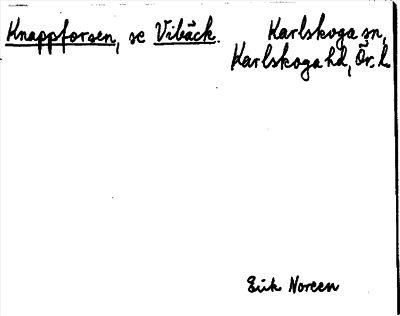 Knappforsen, se Vibäck. Karlskoga sn,
Karlskoga hd, Ör. l.
Erik Noreen